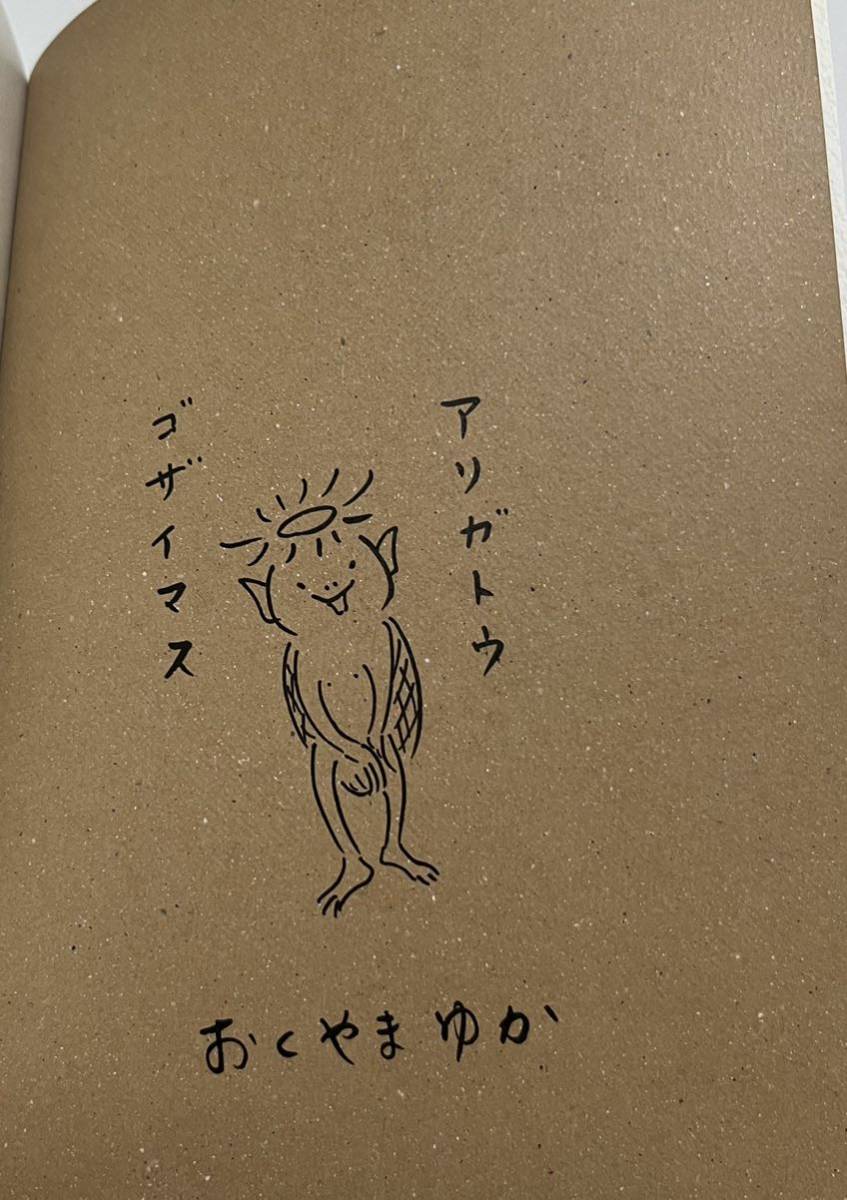 アリガトウ
ゴザイマス
おくやまゆか